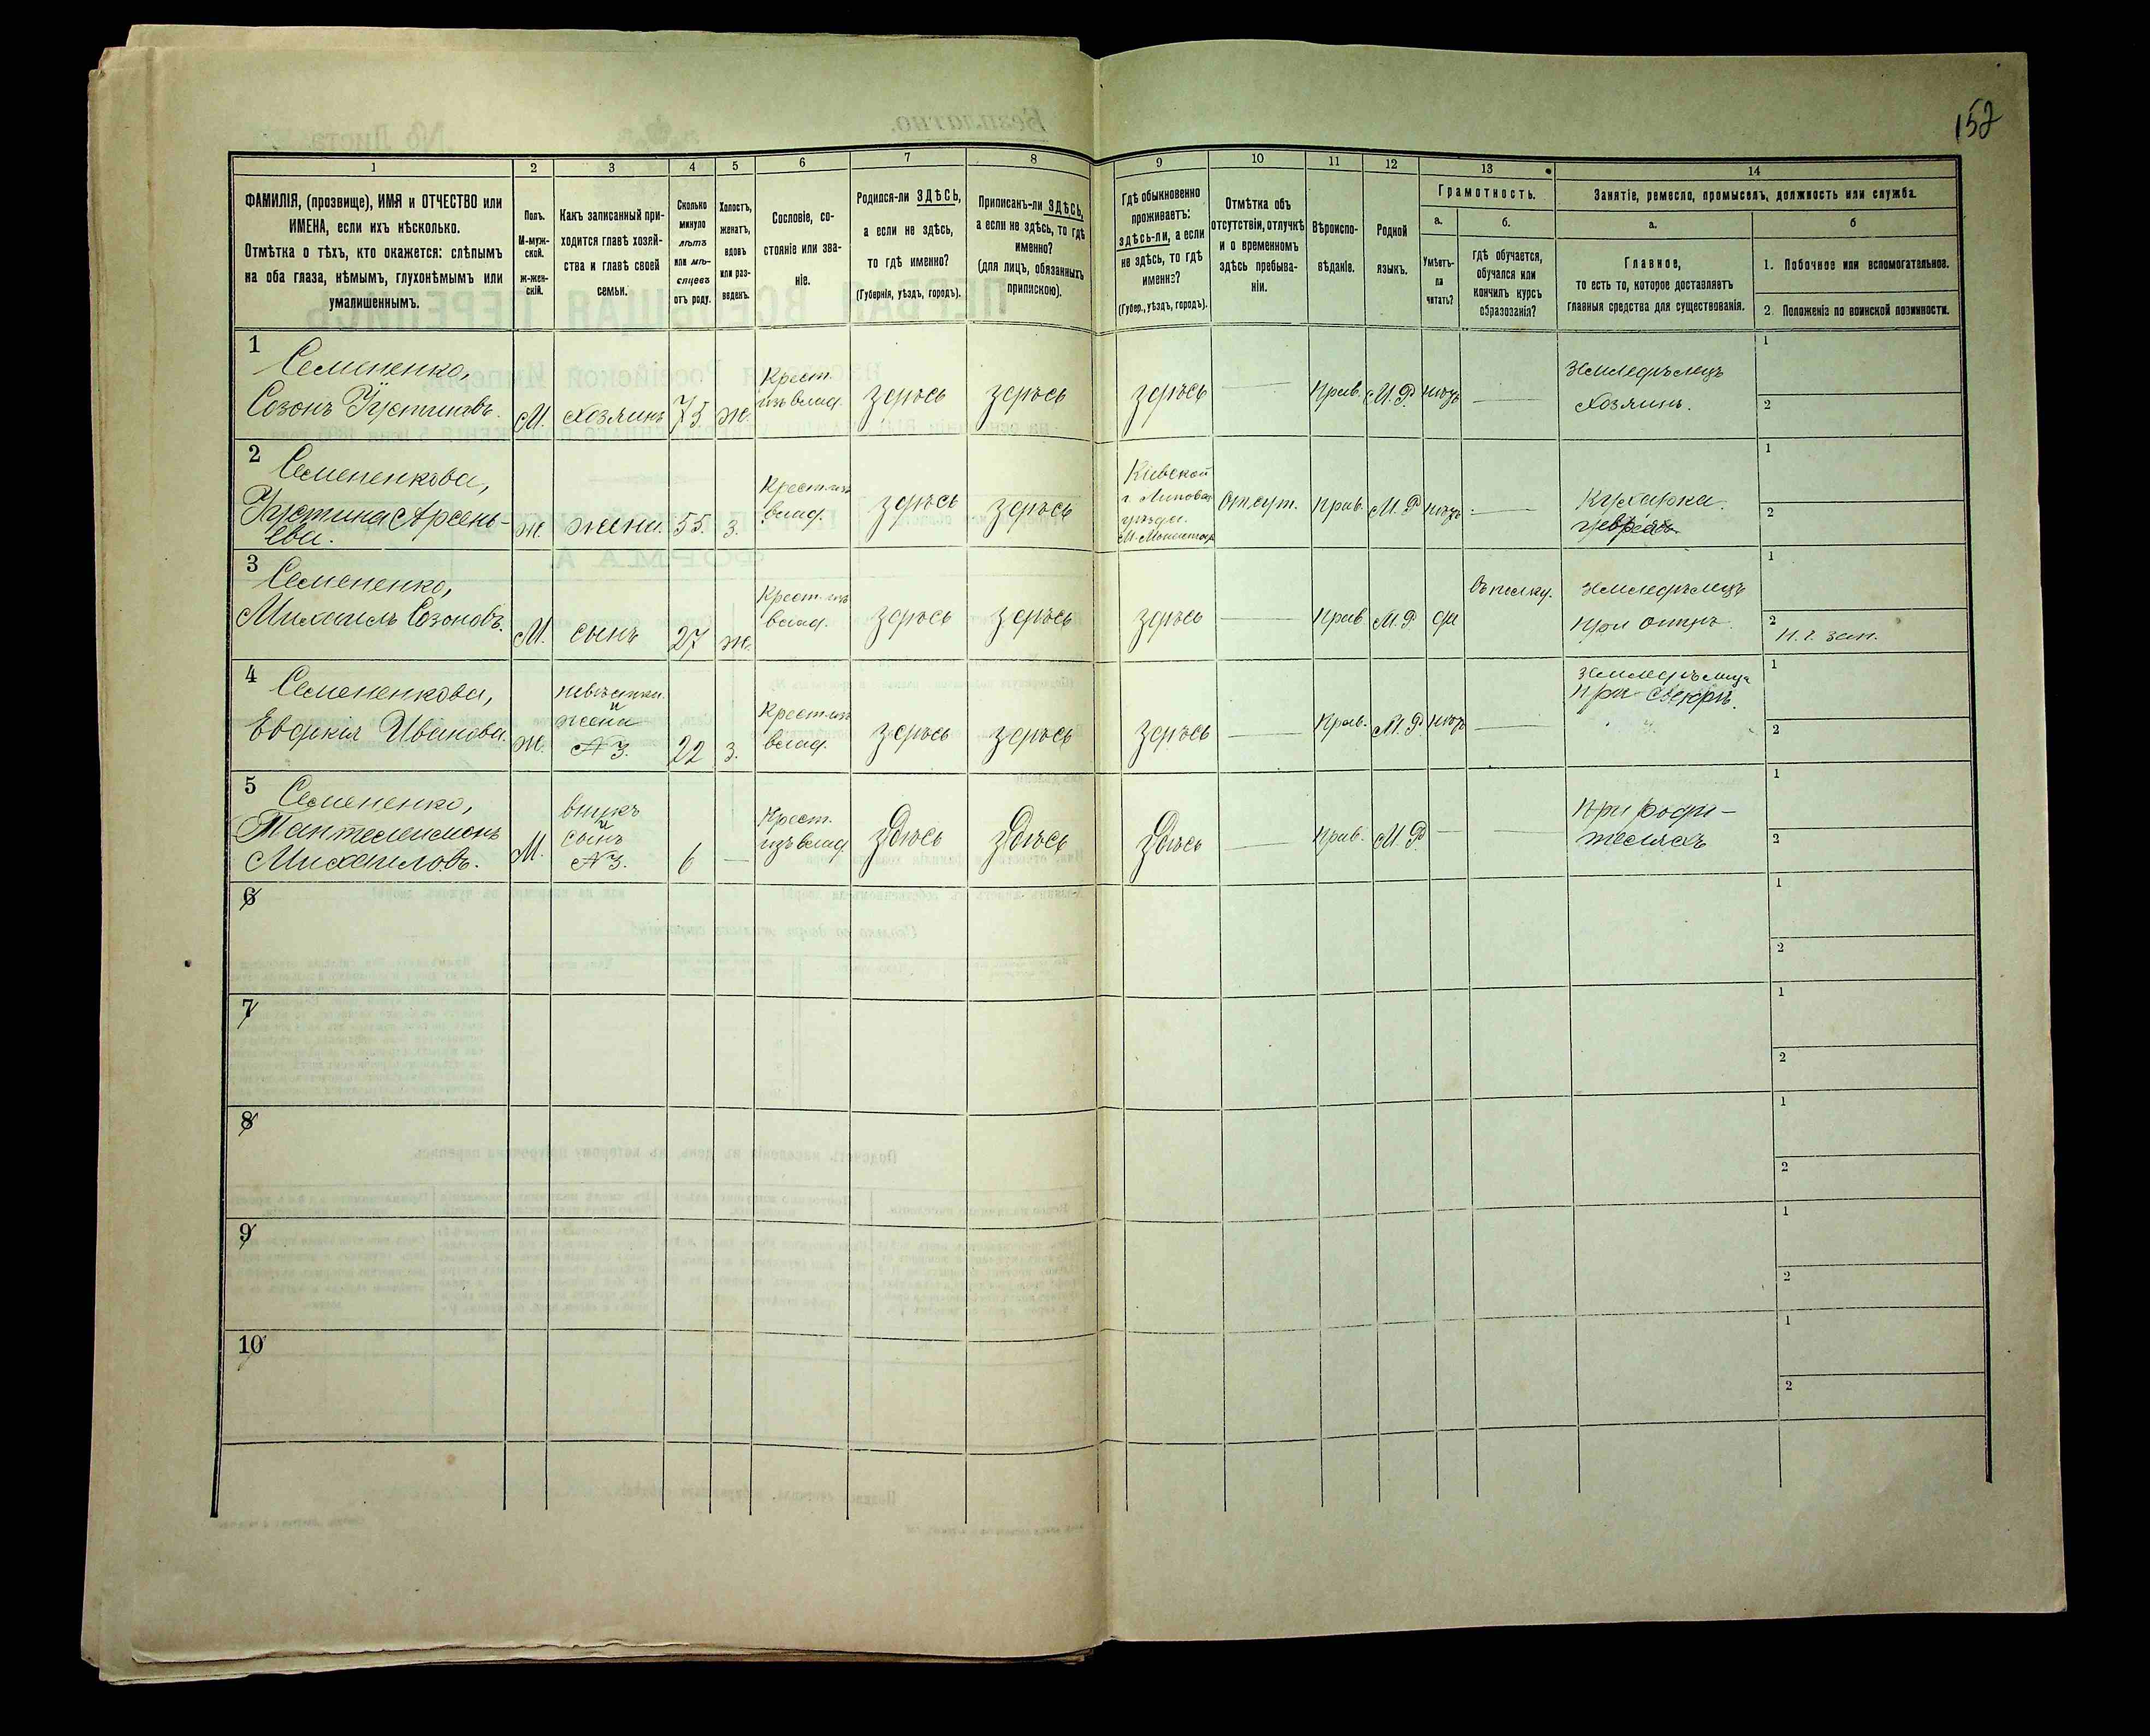 152
1 2 3 4 5 6 7 8 9 10 11 12 13 14
ФАМИЛІЯ, (прозвище), ИМЯ и ОТЧЕСТВО или
ИМЕНА, если ихъ нѣсколько.
Отмѣтка о тѣхъ, кто окажется: слѣпымъ
на оба глаза, нѣмымъ, глухонѣмымъ или
умалишеннымъ.
Полъ.
М-муж-
ской.
Ж-жен-
скій.
Какъ записанный при-
ходится главѣ хозяй-
ства и главѣ своей
семьи.
Сколько
минуло
лѣтъ
или мѣ-
сяцевъ
отъ роду.
Холостъ,
женатъ,
вдовъ
или раз-
веденъ.
Сословіе, со-
стояніе или зва-
ніе.
Родился-ли ЗДѢСЬ,
а если не здѣсь,
то гдѣ именно?
(Губернія, уѣздъ, городъ).
Приписанъ-ли ЗДѢСЬ,
а если не здѣсь, то гдѣ
именно?
(для лицъ, обязанныхъ
припискою).
Гдѣ обыкновенно
проживаетъ:
здѣсь-ли, а если
не здѣсь, то гдѣ
именно?
(Губер., уѣздъ, городъ).
Отмѣтка объ
отсутствіи, отлучкѣ
и о временномъ
здѣсь пребыва-
ніи.
Вѣроиспо-
вѣданіе.
Родной
языкъ.
Грамотность.
а.
Умѣетъ-
ли
читать?
б.
гдѣ обучается,
обучался или
кончилъ курсъ
образованія?
Занятіе, ремесло, промыселъ, должность или служба.
а.
Главное,
то есть то, которое доставляетъ
главныя средства для существованія.
б
1. Побочное или вспомогательное.
2. Положеніе по воинской повинности.
1
Семененко,
Созонъ Устиновъ.
М.
Хозяинъ
75
Ж.
Крест.
изъ влад.
здѣсь
здѣсь
здѣсь
Прав.
М. Р.
нѣтъ
земледѣлецъ
Хозяинъ.
1
2
2
Семененкова,
Устина Арсень-
ева.
Ж.
жена.
55.
З.
Крест. изъ
влад.
здѣсь
здѣсь
Кіевской
г. Липовец
уѣзда.
Отсут.
Прав.
М. Р
нѣтъ
Кухарка
1
2
3
Семененко,
Михаилъ Созоновъ.
М.
сынъ
27
Ж.
Крест. изъ
влад.
здѣсь
здѣсь
здѣсь
Прав
М. Р
да
Въ полку.
земледѣлецъ
при отцѣ.
1
2
4
Семененкова,
Евдокія Иванова
Ж.
невѣстка
и
жена
№ 3.
22
З.
Крест. изъ
влад.
здѣсь
здѣсь
здѣсь
Прав.
М. Р.
нѣтъ
земледѣлица
при свекрѣ.
1
2
5
Семененко,
Пантелеимонъ
Михаиловъ.
М.
внукъ
и
сынъ
№ 3.
6
Крест.
изъ влад
Здѣсь
Здѣсь
Здѣсь
Прав.
М. Р.
при роди-
теляхъ
1
2
6
1
2
7
1
2
8
1
2
9
1
2
10
1
2